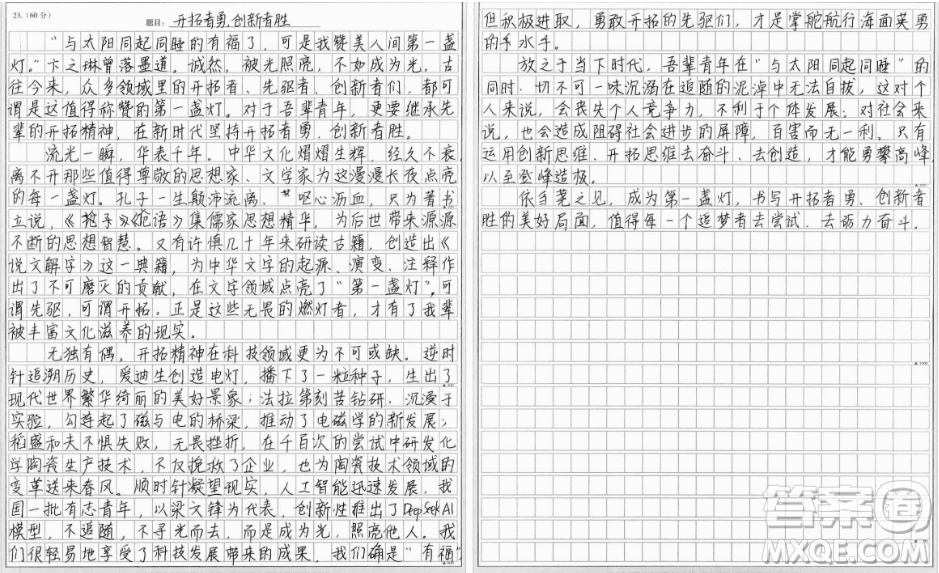 23.（60分）
题目：开拓者勇,创新者胜
“与太阳同起同睡的有福了，可是我赞美人间第一盏
灯。”卞之琳曾落墨道。诚然，被光照亮，不如成为光，古
往今来，众多领域里的开拓者、先驱者、创新者们，都可
谓是这值得称赞的第一盏灯。对于吾辈青年，更要继承先
辈的开拓精神，在新时代坚持开拓者勇，创新者胜。
流光一瞬，华表千年。中华文化熠熠生辉，经久不衰，
离不开那些值得尊敬的思想家、文学家为这漫漫长夜点亮
的每一盏灯。孔子一生颠沛流离，呕心沥血，只为著书
立说，《论语》集儒家思想精华，为后世带来源源
不断的思想智慧。又有许慎几十年来研读古籍，创造出《
说文解字》这一典籍，为中华文字的起源、演变、注释作
出了不可磨灭的贡献，在文字领域点亮了“第一盏灯”。可
谓先驱，可谓开拓，正是这些无畏的燃灯者，才有了我辈
被丰富文化滋养的现实。
无独有偶，开拓精神在科技领域更为不可或缺。逆时
针追溯历史，爱迪生创造电灯，播下了一粒种子，生出了
现代世界繁华绮丽的美好景象；法拉第刻苦钻研，沉浸于
实验，勾连起了磁与电的桥梁，推动了电磁学的新发展；
稻盛和夫不惧失败，无畏挫折，在千百次的尝试中研发化
学陶瓷生产技术，不仅挽救了企业，也为陶瓷技术领域的
变革送来春风。顺时针凝望现实，人工智能迅速发展，我
国一批有志青年，以梁文锋为代表，创新性推出了DeepSeekAI
模型，不追随，不寻光而去，而是成为光，照亮他人。我
们很轻易地享受了科技发展带来的成果，我们确是“有福”
但积极进取，勇敢开拓的先驱们，才是掌舵航行海面英勇
的水手。
放之于当下时代，吾辈青年在“与太阳同起同睡”的
同时，切不可一味沉溺在追随的泥淖中无法自拔，这对个
人来说，会丧失个人竞争力，不利于个体发展；对社会来
说，也会造成阻碍社会进步的屏障，百害而无一利。只有
运用创新思维、开拓思维去奋斗、去创造，才能勇攀高峰，
以至登峰造极。
依刍荛之见，成为第一盏灯，书写开拓者勇、创新者
胜的美好局面，值得每一个追梦者去尝试、去努力奋斗。
答案圈
MXQE.COM